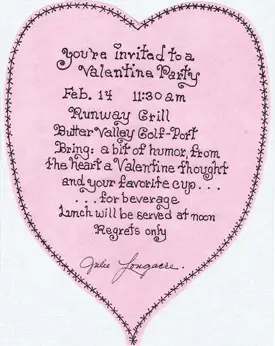 You're invited to a
Valentine Party
Feb. 14 11:30 am
Runway Grill
Butter Valley Golf-Port
Bring: a bit of humor, from
the heart a Valentine thought
and your favorite cup...
...for beverage
Lunch will be served at noon
Regrets only
Julie Longacre.